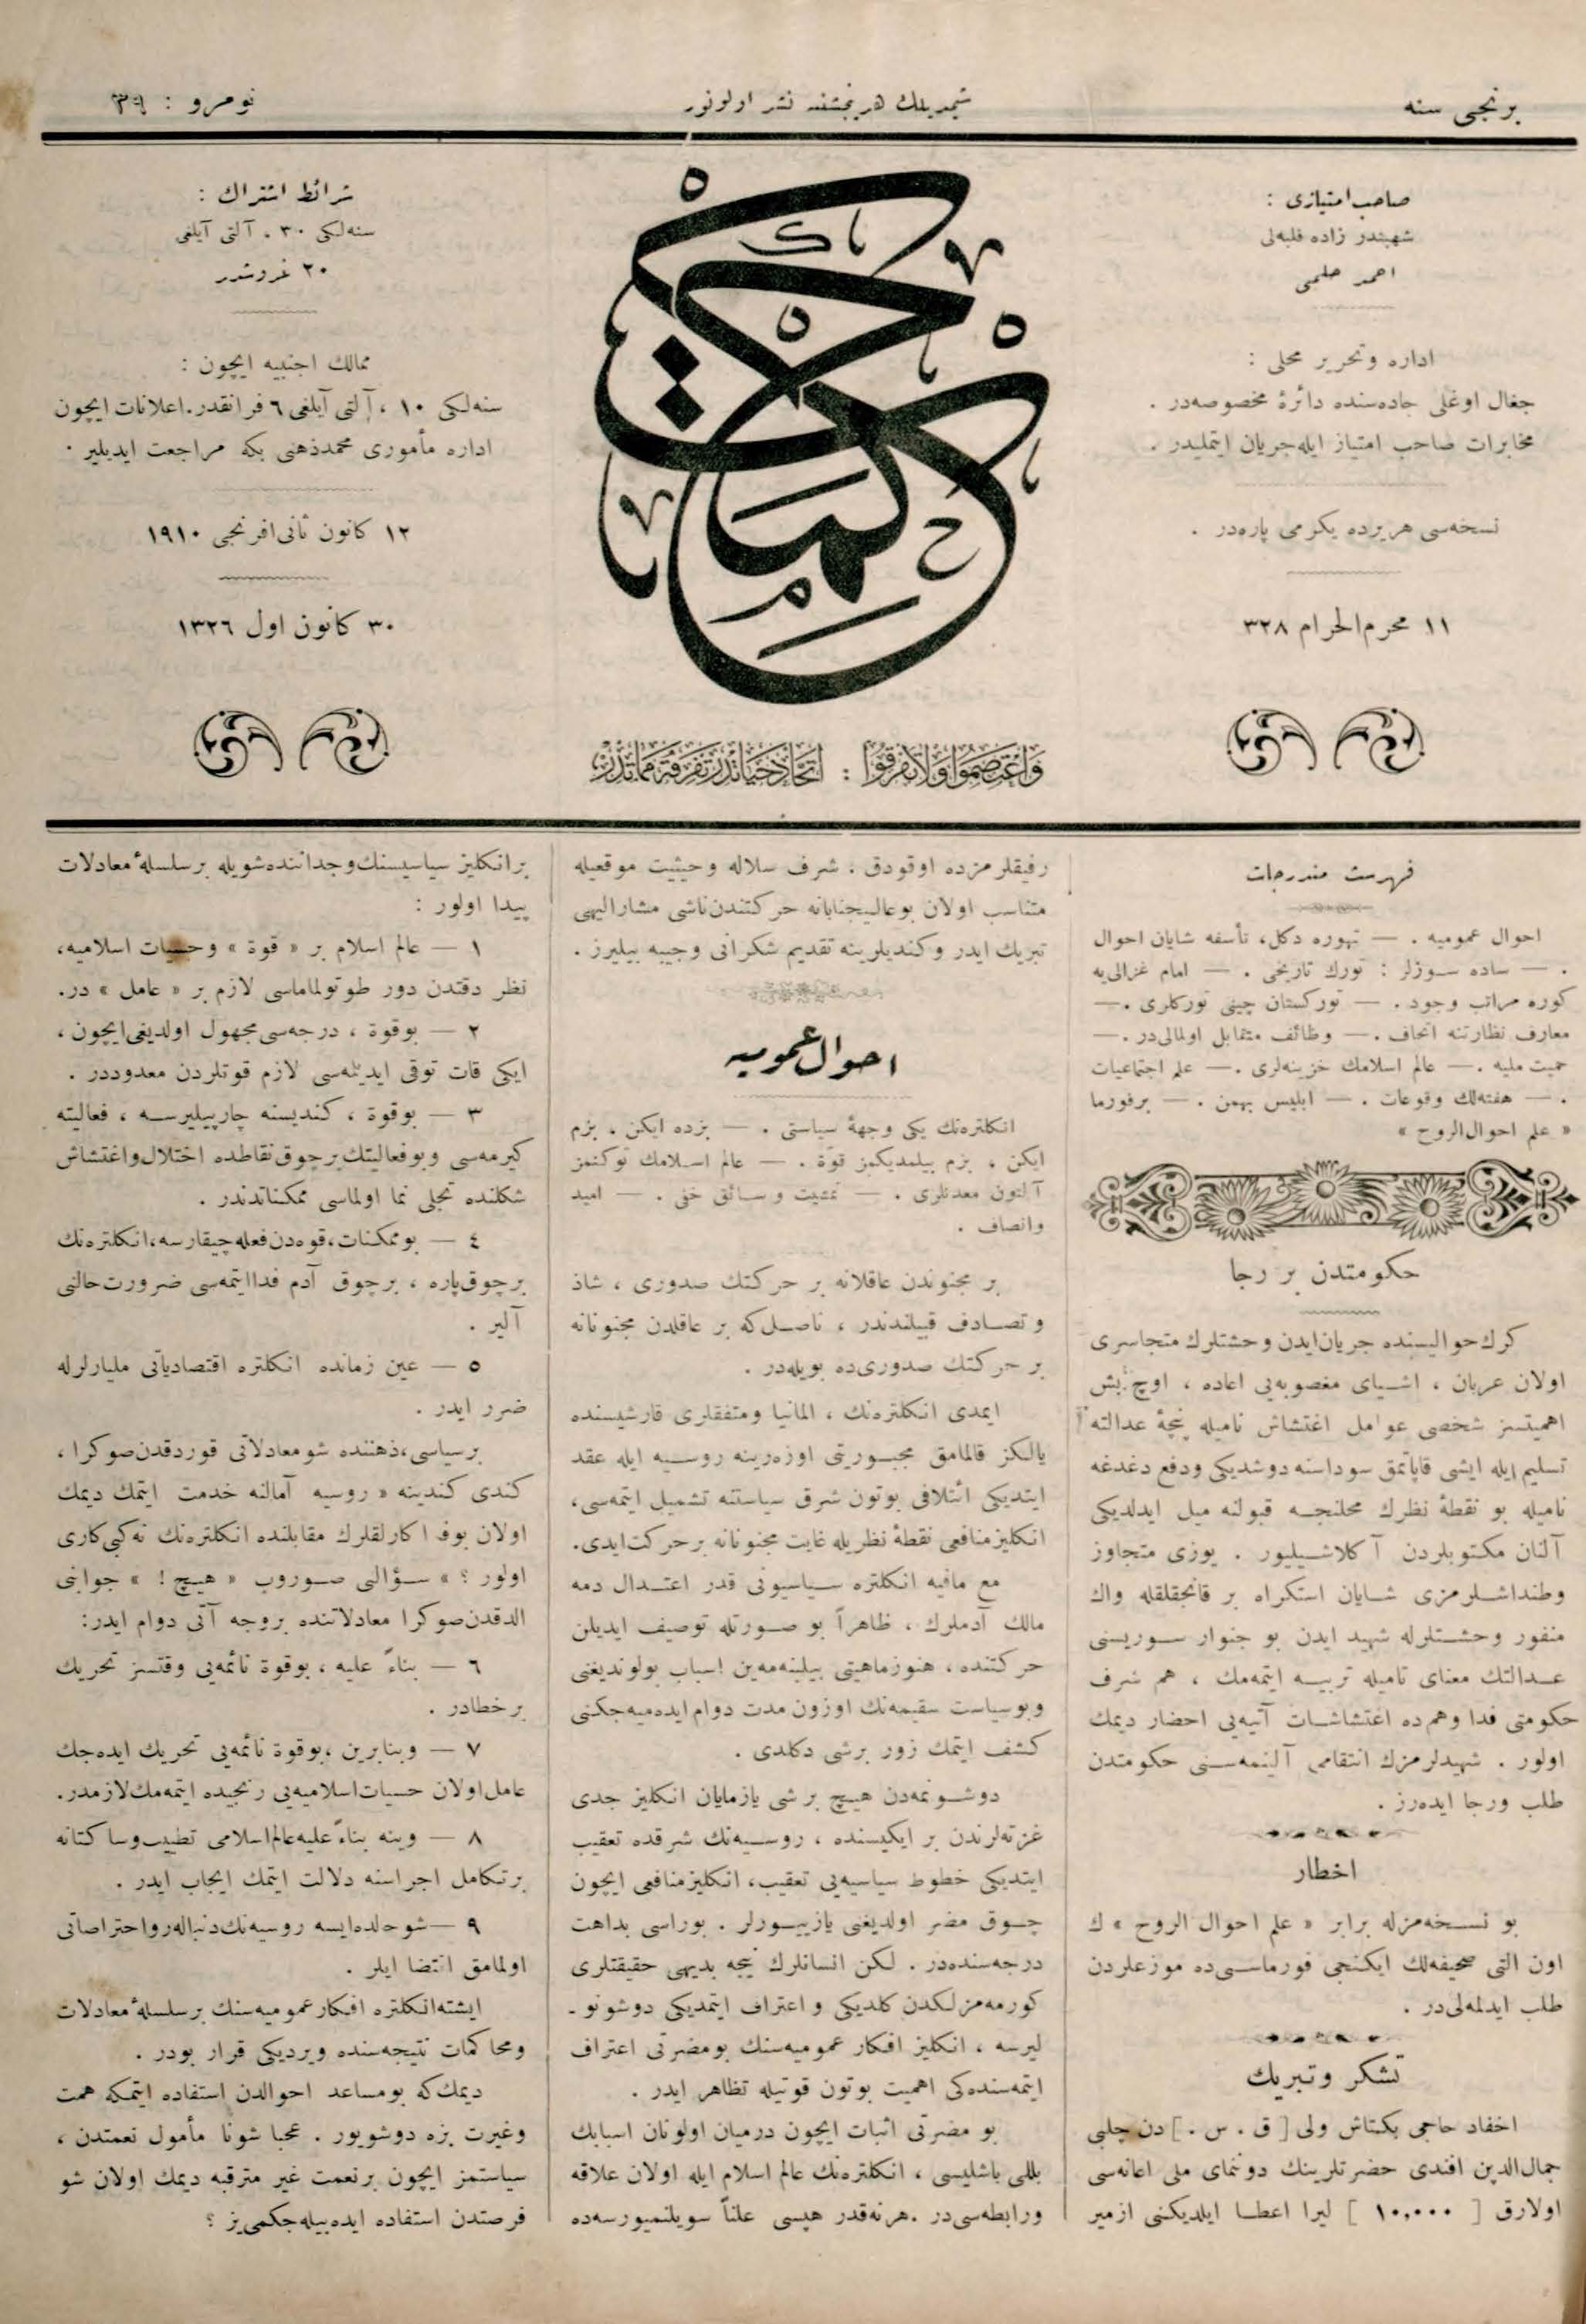 برنجی سنه
شیمدیلك هر پنجشنبه نشر اولونور
نومرو : ٣٩
صاحب امتیازی :
شهبندر زاده فلبه‌لی
احمد حلمی
اداره وتحریر محلی :
جغال اوغلی جاده‌سنده دائرهٔ مخصوصه‌در .
مخابرات صاحب امتیاز ایله جریان ایتملیدر .
نسخه‌سی هر یرده یگرمی پاره‌در .
١١ محرم‌الحرام ٣٢٨
حكمت
واعتصموا ولا تفرقوا : اتحاد حیاتدر تفرقه مماتدر
شرائط اشتراك :
سنه‌لكی ٣٠ ، آلتی آیلغی
٢٠ غروشدر
ممالك اجنبیه ایچون :
سنه‌لكی ١٠ ، آلتی آیلغی ٦ فرانقدر. اعلانات ایچون
اداره مأموری محمدذهنی بكه مراجعت ایدیلیر .
١٢ كانون ثانی افرنجی ١٩١٠
٣٠ كانون اول ١٣٢٦
فهرست مندرجات
احوال عمومیه . — تهوره دكل، تأسفه شایان احوال
. — ساده سوزلر : تورك تاریخی . — امام غزالی‌یه
كوره مراتب وجود . — توركستان چینی توركلری . —
معارف نظارتنه اتحاف . — وظائف متقابل اولمالی‌در . —
حمیت ملیه . — عالم اسلامك خزینه‌لری . — علم اجتماعیات
. — هفته‌لك وقوعات . — ابلیس بهمن . — برفورما
« علم احوال‌الروح »
حكومتدن بر رجا
كرك حوالیسنده جریان ایدن وحشتلرك متجاسری
اولان عربان ، اشیای مغصوبه‌یی اعاده ، اوچ بش
اهمیتسز شخصی عوامل اغتشاش نامیله پنجهٔ عدالته
تسلیم ایله ایشی قاپاتمق سوداسنه دوشدیكی ودفع دغدغه
نامیله بو نقطهٔ نظرك محلنجه قبولنه میل ایدلدیكی
آلنان مكتوبلردن آكلاشیلیور . یوزی متجاوز
وطنداشلرمزی شایان استكراه بر قانجقلقله واك
منفور وحشتلرله شهید ایدن بو جنوار سوریسنی
عدالتك معنای تامیله تربیه ایتمه‌مك ، هم شرف
حكومتی فدا وهم‌ده اغتشاشات آتیه‌یی احضار دیمك
اولور . شهیدلرمزك انتقامی آلنمه‌سنی حكومتدن
طلب ورجا ایده‌رز .
اخطار
بو نسخه‌مزله برابر « علم احوال الروح » ك
اون التی صحیفه‌لك ایكنجی فورماسی‌ده موزعلردن
طلب ایدلمه‌لی‌در .
تشكر وتبریك
اخفاد حاجی بكتاش ولی [ ق . س . ] دن چلبی
جمال‌الدین افندی حضرتلرینك دوننمای ملی اعانه‌سی
اولارق [ ١٠,٠٠٠ ] لیرا اعطا ایلدیكنی ازمیر
رفیقلرمزده اوقودق ، شرف سلاله وحیثیت موقعیله
متناسب اولان بوعالیجنابانه حركتندن‌ناشی مشارالیهی
تبریك ایدر وكندیلرینه تقدیم شكرانی وجیبه بیلیرز .
احوال عمومیه
انكلتره‌نك یكی وجههٔ سیاستی . — بزده ایكن ، بزم
ایكن ، بزم بیلمدیكمز قوة . — عالم اسلامك توكنمز
آلتون معدنلری . — تمشیت وسائق خفی . — امید
وانصاف .
بر مجنوندن عاقلانه بر حركتك صدوری ، شاذ
وتصادف قبیلندندر ، ناصل‌كه بر عاقلدن مجنونانه
بر حركتك صدوری‌ده بویله‌در .
ایمدی انكلتره‌نك ، المانیا ومتفقلری قارشیسنده
یالكز قالمامق مجبوریتی اوزه‌رینه روسیه ایله عقد
ایتدیكی ائتلافی بوتون شرق سیاستنه تشمیل ایتمه‌سی،
انكلیز منافعی نقطهٔ نظریله غایت مجنونانه برحركت ایدی.
مع مافیه انكلتره سیاسیونی قدر اعتدال دمه
مالك آدملرك ، ظاهراً بو صورتله توصیف ایدیلن
حركتنده ، هنوز ماهیتی بیلینه‌مه‌ین اسباب بولوندیغنی
وبو سیاست سقیمه‌نك اوزون مدت دوام ایده‌میه‌جكنی
كشف ایتمك زور برشی دكلدی .
دوشونمه‌دن هیچ برشی یازمایان انكلیز جدی
غزته‌لرندن بر ایكیسنده ، روسیه‌نك شرقده تعقیب
ایتدیكی خطوط سیاسیه‌یی تعقیب، انكلیز منافعی ایچون
چوق مضر اولدیغنی یازییورلر . بوراسی بداهت
درجه‌سنده‌در . لكن انسانلرك نیجه بدیهی حقیقتلری
كورمه‌مزلكدن كلدیكی واعتراف ایتمدیكی دوشونو-
لیرسه ، انكلیز افكار عمومیه‌سنك بومضرتی اعتراف
ایتمه‌سنده‌كی اهمیت بوتون قوتیله تظاهر ایدر .
بو مضرتی اثبات ایچون درمیان اولونان اسبابك
بللی باشلیسی ، انكلتره‌نك عالم اسلام ایله اولان علاقه
ورابطه‌سی‌در . هر نه‌قدر هپسی علناً سویلنمیورسه‌ده
بر انكلیز سیاسیسنك وجداننده شویله بر سلسلهٔ معادلات
پیدا اولور :
١ — عالم اسلام بر « قوة » وحسیات اسلامیه،
نظر دقتدن دور طوتولماماسی لازم بر « عامل » در.
٢ — بوقوة ، درجه‌سی مجهول اولدیغی ایچون ،
ایكی قات توقی ایدیلمه‌سی لازم قوتلردن معدوددر .
٣ — بوقوة ، كندیسنه چارپیلیرسه ، فعالیته
كیرمه‌سی وبوفعالیتك برچوق نقاطده اختلال واغتشاش
شكلنده تجلی نما اولماسی ممكناتدندر .
٤ — بوممكنات، قوه‌دن فعله چیقارسه، انكلتره‌نك
برچوق پاره ، برچوق آدم فداایتمه‌سی ضرورت حالنی
آلیر .
٥ — عین زمانده انكلتره اقتصادیاتی ملیارلرله
ضرر ایدر .
برسیاسی، ذهننده شومعادلاتی قوردقدن صوكرا ،
كندی كندینه « روسیه آمالنه خدمت ایتمك دیمك
اولان بوفداكارلقلرك مقابلنده انكلتره‌نك نه كبی كاری
اولور ؟ » سؤالی صوروب « هیچ ! » جوابنی
الدقدن صوكرا معادلاتنده بروجه آتی دوام ایدر:
٦ — بناءً علیه ، بوقوة نائمه‌یی وقتسز تحریك
برخطادر .
٧ — وبنابرین ، بوقوة نائمه‌یی تحریك ایده‌جك
عامل اولان حسیات اسلامیه‌یی رنجیده ایتمه‌مك لازمدر.
٨ — وینه بناءً علیه عالم اسلامی تطییب وساكتانه
برتكامل اجراسنه دلالت ایتمك ایجاب ایدر .
٩ — شو حالده ایسه روسیه‌نك دنباله‌رو احتراصاتی
اولمامق اقتضا ایلر .
ایشته انكلتره افكار عمومیه‌سنك بر سلسلهٔ معادلات
ومحاكمات نتیجه‌سنده ویردیكی قرار بودر .
دیمك‌كه بومساعد احوالدن استفاده ایتمكه همت
وغیرت بزه دوشویور . عجبا شونا مأمول نعمتدن ،
سیاستمز ایچون برنعمت غیر مترقبه دیمك اولان شو
فرصتدن استفاده ایده‌بیله‌جكمی‌یز ؟